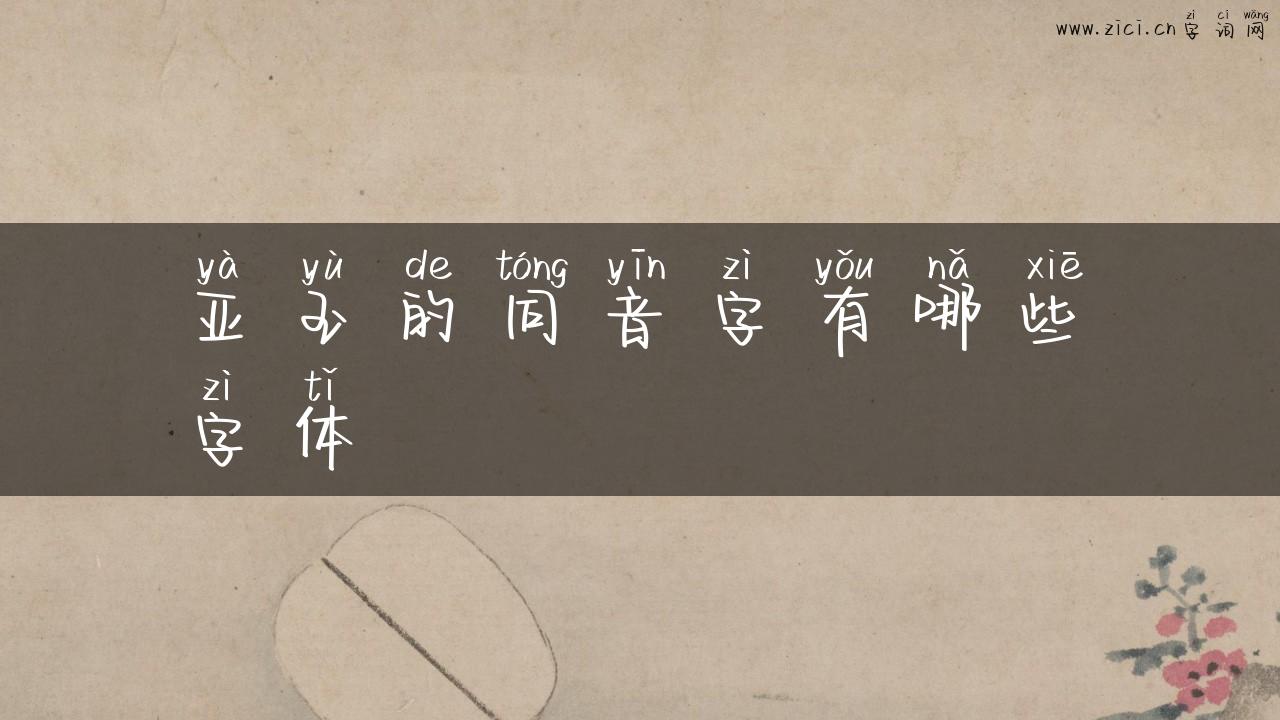 zì cí wǎng
www.zici.cn 字词网
yà yù de tóng yīn zì yǒu nǎ xiē
亚玉的同音字有哪些
zì tǐ
字体